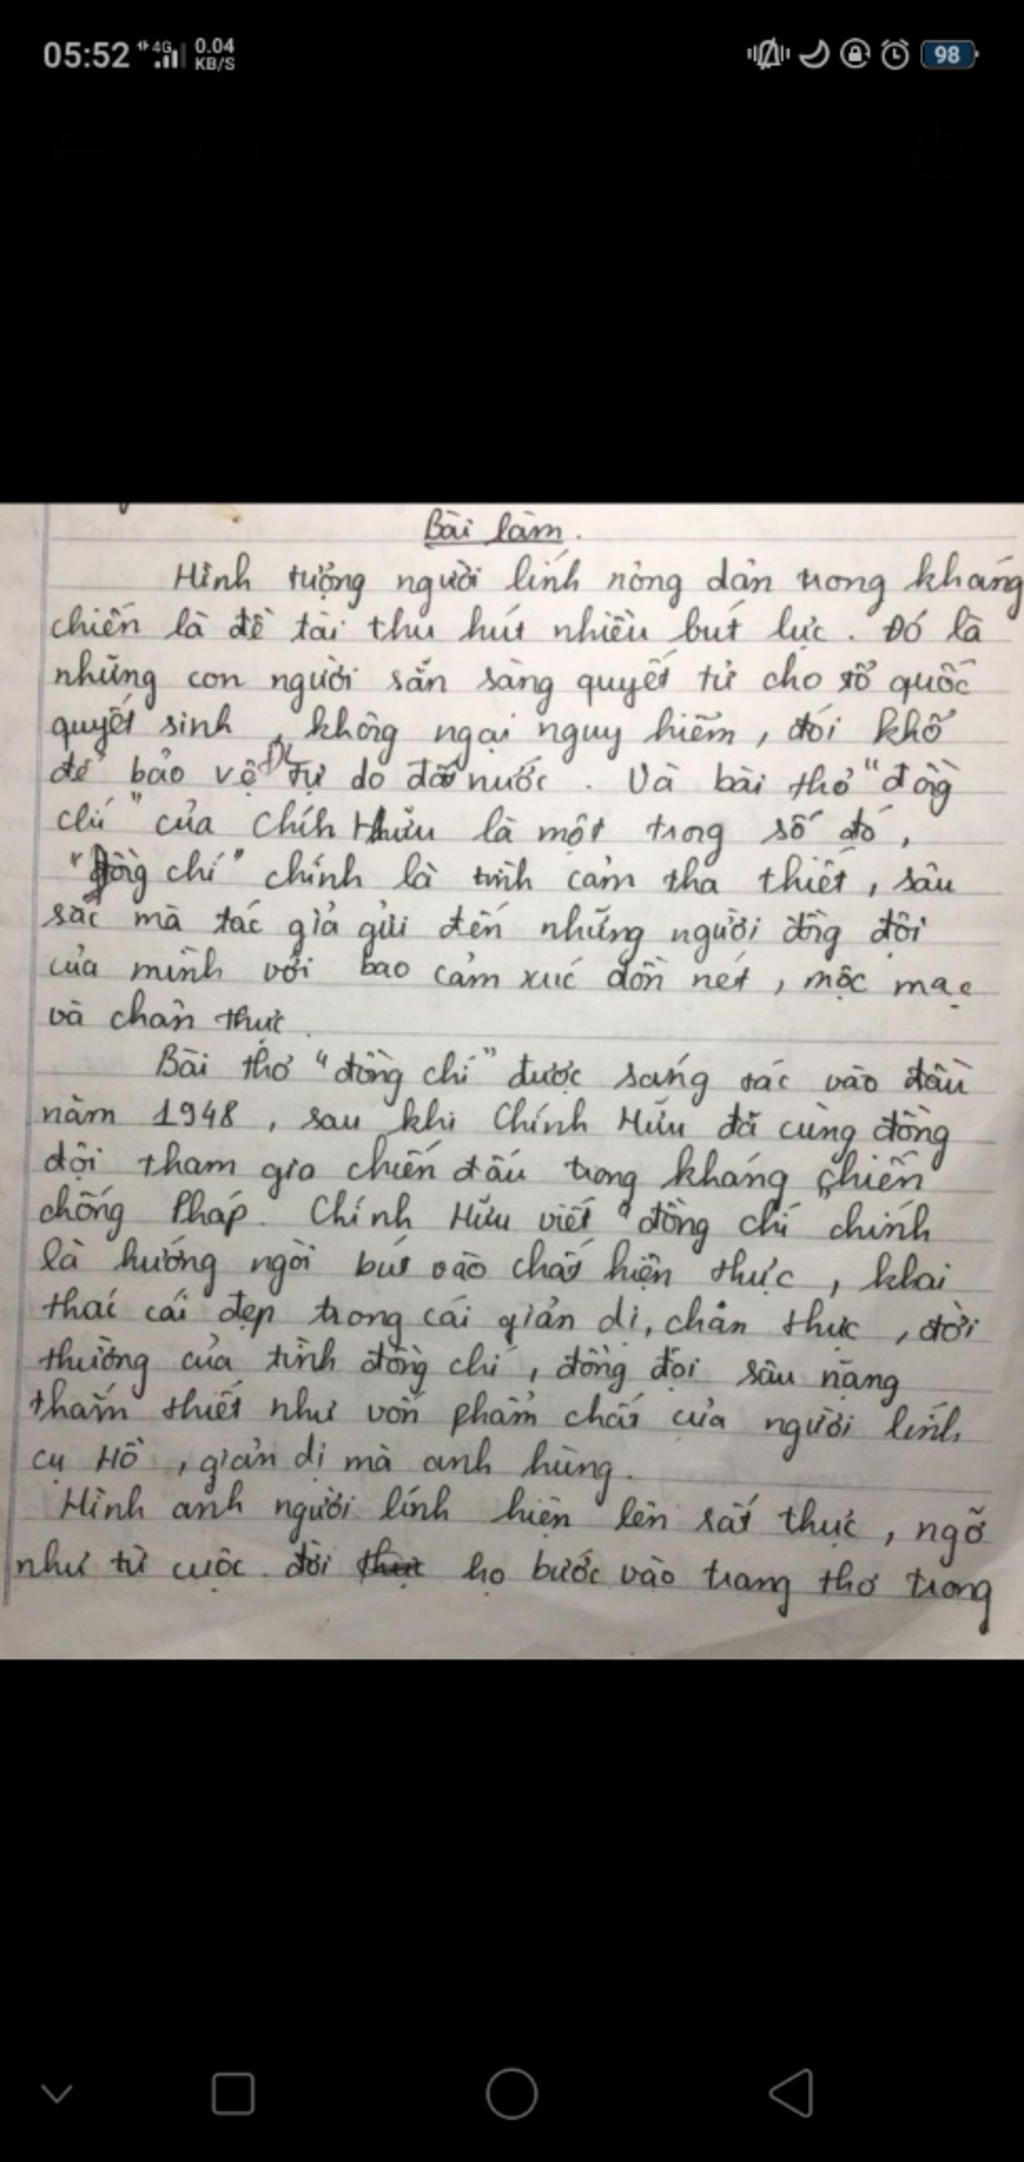 05:52 4G 0.04 KB/S 98
Bài làm.
Hình tượng người lính nông dân trong kháng
chiến là đề tài thu hút nhiều bút lực. Đó là
những con người sẵn sàng quyết tử cho tổ quốc
quyết sinh, không ngại nguy hiểm, đói khổ
để bảo vệ tự do đất nước. Và bài thơ "đồng
chí" của Chính Hữu là một trong số đó,
"Đồng chí" chính là tình cảm tha thiết, sâu
sắc mà tác giả gửi đến những người đồng đội
của mình với bao cảm xúc dồn nét, mộc mạc
và chân thực.
Bài thơ "đồng chí" được sáng tác vào đầu
năm 1948, sau khi Chính Hữu đã cùng đồng
đội tham gia chiến đấu trong kháng chiến
chống Pháp. Chính Hữu viết "đồng chí chính
là hướng ngòi bút vào chất hiện thực, khai
thác cái đẹp trong cái giản dị, chân thực, đời
thường của tình đồng chí, đồng đội sâu nặng
thắm thiết như vốn phẩm chất của người lính
cụ Hồ, giản dị mà anh hùng.
Hình anh người lính hiện lên rất thực, ngỡ
như từ cuộc đời họ bước vào trang thơ trong